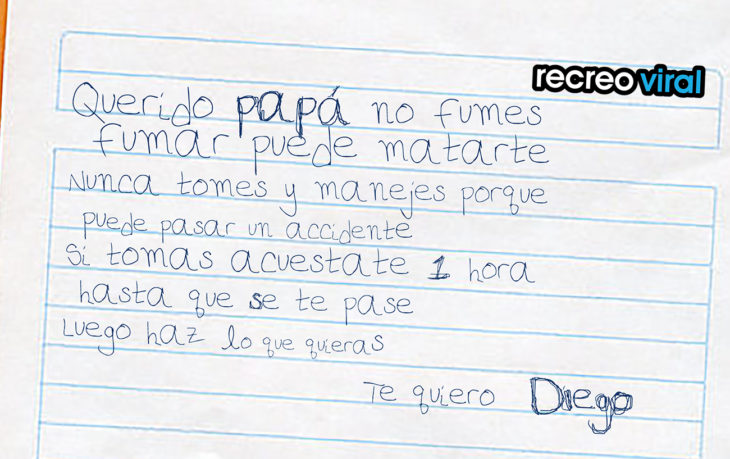 recreoviral
Querido papá no fumes
fumar puede matarte
Nunca tomes y manejes porque
puede pasar un accidente
Si tomas acuestate 1 hora
hasta que se te pase
Luego haz lo que quieras
Te quiero Diego